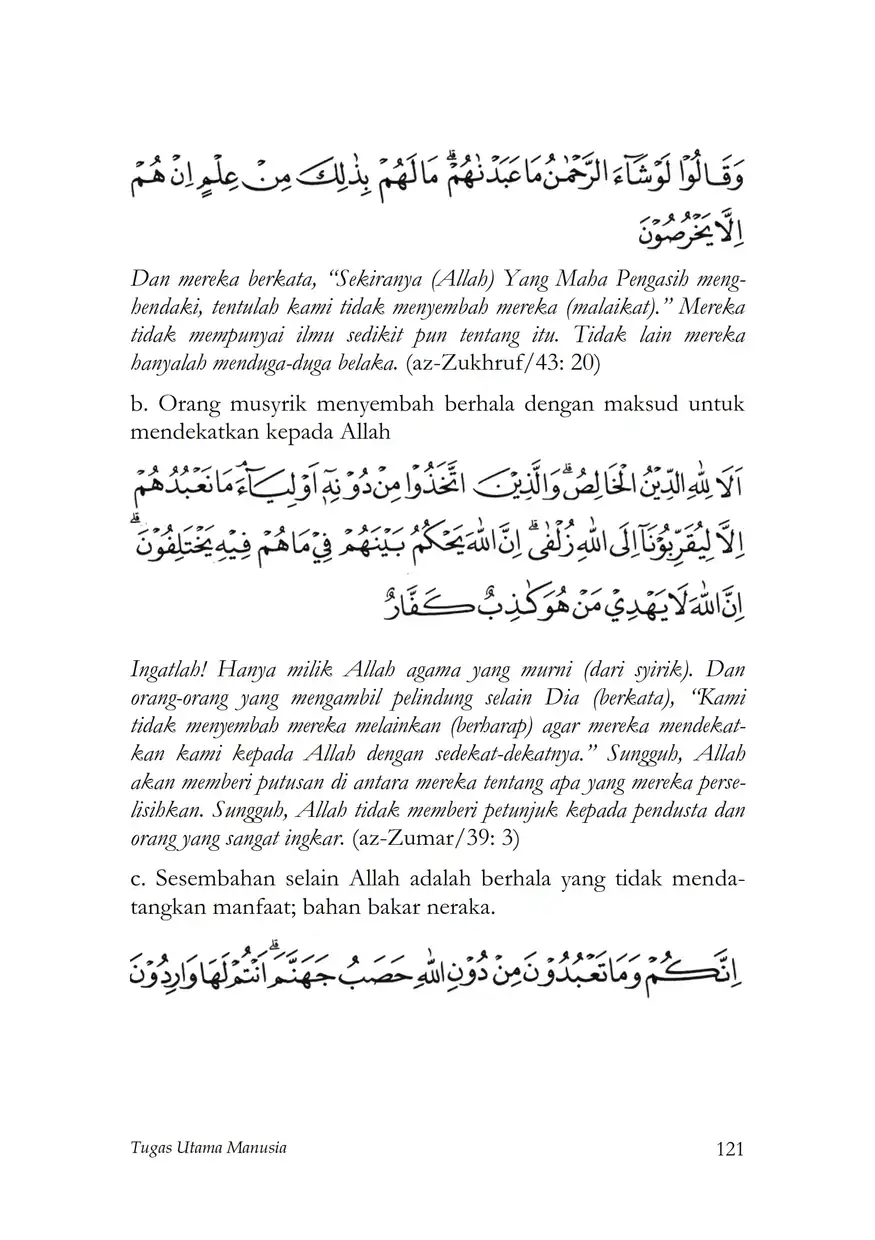 وَقَالُوْا لَوْ شَاۤءَ الرَّحْمٰنُ مَا عَبَدْنٰهُمْۗ مَا لَهُمْ بِذٰلِكَ مِنْ عِلْمٍ اِنْ هُمْ
اِلَّا يَخْرُصُوْنَ
Dan mereka berkata, “Sekiranya (Allah) Yang Maha Pengasih meng-
hendaki, tentulah kami tidak menyembah mereka (malaikat).” Mereka
tidak mempunyai ilmu sedikit pun tentang itu. Tidak lain mereka
hanyalah menduga-duga belaka. (az-Zukhruf/43: 20)
b. Orang musyrik menyembah berhala dengan maksud untuk
mendekatkan kepada Allah
اَلَا لِلّٰهِ الدِّيْنُ الْخَالِصُۗ وَالَّذِيْنَ اتَّخَذُوْا مِنْ دُوْنِهٖٓ اَوْلِيَاۤءَۘ مَا نَعْبُدُهُمْ
اِلَّا لِيُقَرِّبُوْنَآ اِلَى اللّٰهِ زُلْفٰىۗ اِنَّ اللّٰهَ يَحْكُمُ بَيْنَهُمْ فِيْ مَا هُمْ فِيْهِ يَخْتَلِفُوْنَۗ
اِنَّ اللّٰهَ لَا يَهْدِيْ مَنْ هُوَ كٰذِبٌ كَفَّارٌ
Ingatlah! Hanya milik Allah agama yang murni (dari syirik). Dan
orang-orang yang mengambil pelindung selain Dia (berkata), “Kami
tidak menyembah mereka melainkan (berharap) agar mereka mendekat-
kan kami kepada Allah dengan sedekat-dekatnya.” Sungguh, Allah
akan memberi putusan di antara mereka tentang apa yang mereka perse-
lisihkan. Sungguh, Allah tidak memberi petunjuk kepada pendusta dan
orang yang sangat ingkar. (az-Zumar/39: 3)
c. Sesembahan selain Allah adalah berhala yang tidak menda-
tangkan manfaat; bahan bakar neraka.
اِنَّكُمْ وَمَا تَعْبُدُوْنَ مِنْ دُوْنِ اللّٰهِ حَصَبُ جَهَنَّمَۗ اَنْتُمْ لَهَا وَارِدُوْنَ
Tugas Utama Manusia 121